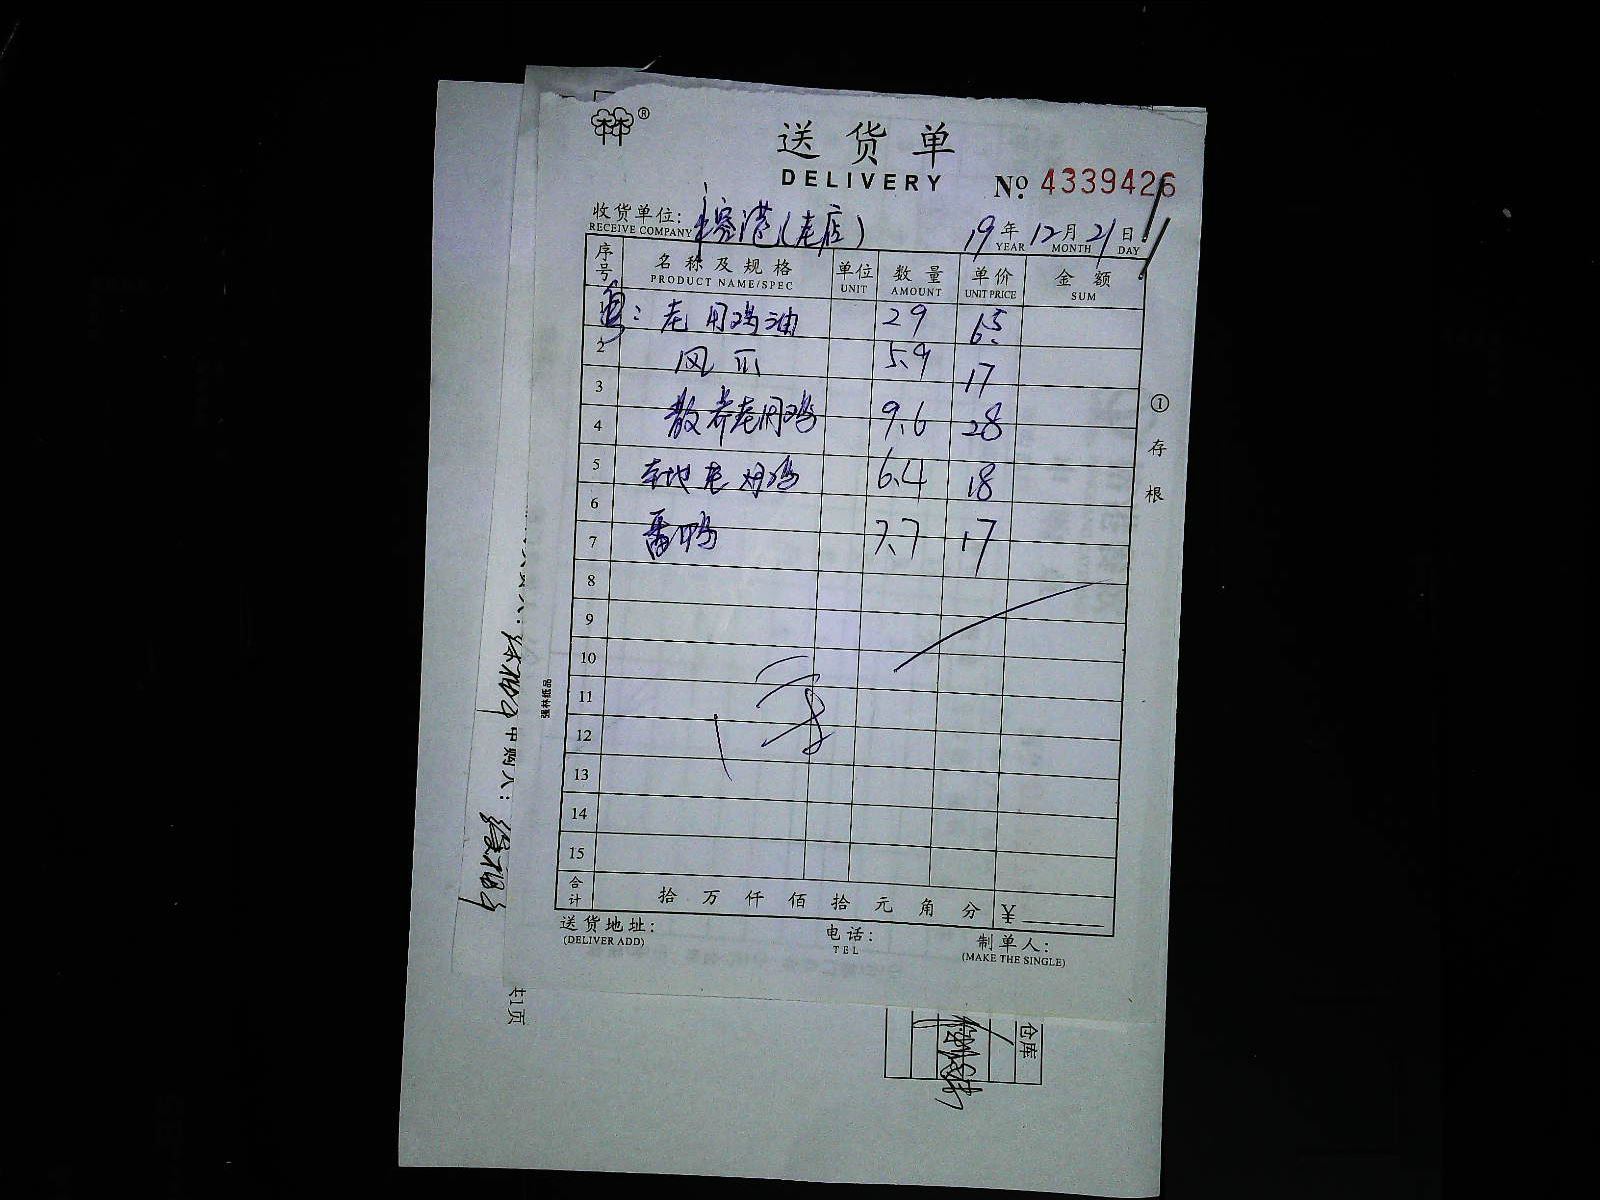 林®
送货单
DELIVERY № 4339426
收货单位: 港(老店) 19年12月21日
RECEIVE COMPANY YEAR MONTH DAY
序号 名称及规格 单位 数量 单价 金额
PRODUCT NAME/SPEC UNIT AMOUNT UNIT PRICE SUM
1 老鸡油 29 65
2 风爪 5.9 17
3
4 散养老鸡 9.6 28
5 本地老鸡 6.4 18
6
7 番鸭 7.7 17
8
9
10
11
12
13
14
15
合计 拾万仟佰拾元角分 ¥
送货地址: 电话: 制单人:
(DELIVER ADD) TEL (MAKE THE SINGLE)
①存根
强林纸品
申购人:
仓库